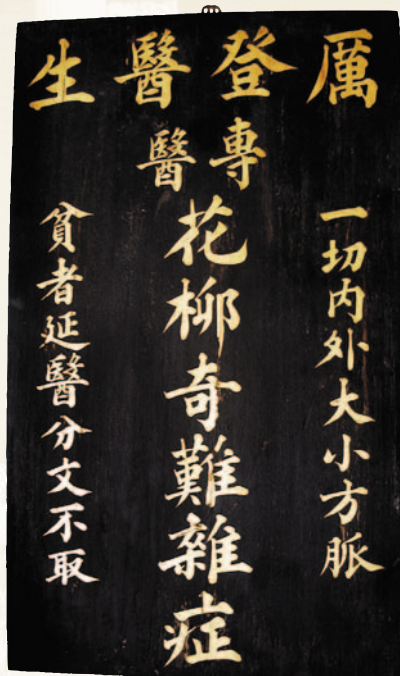 厲登醫醫生
專醫
一切內外大小方脈
花柳奇難雜症
貧者延醫分文不取